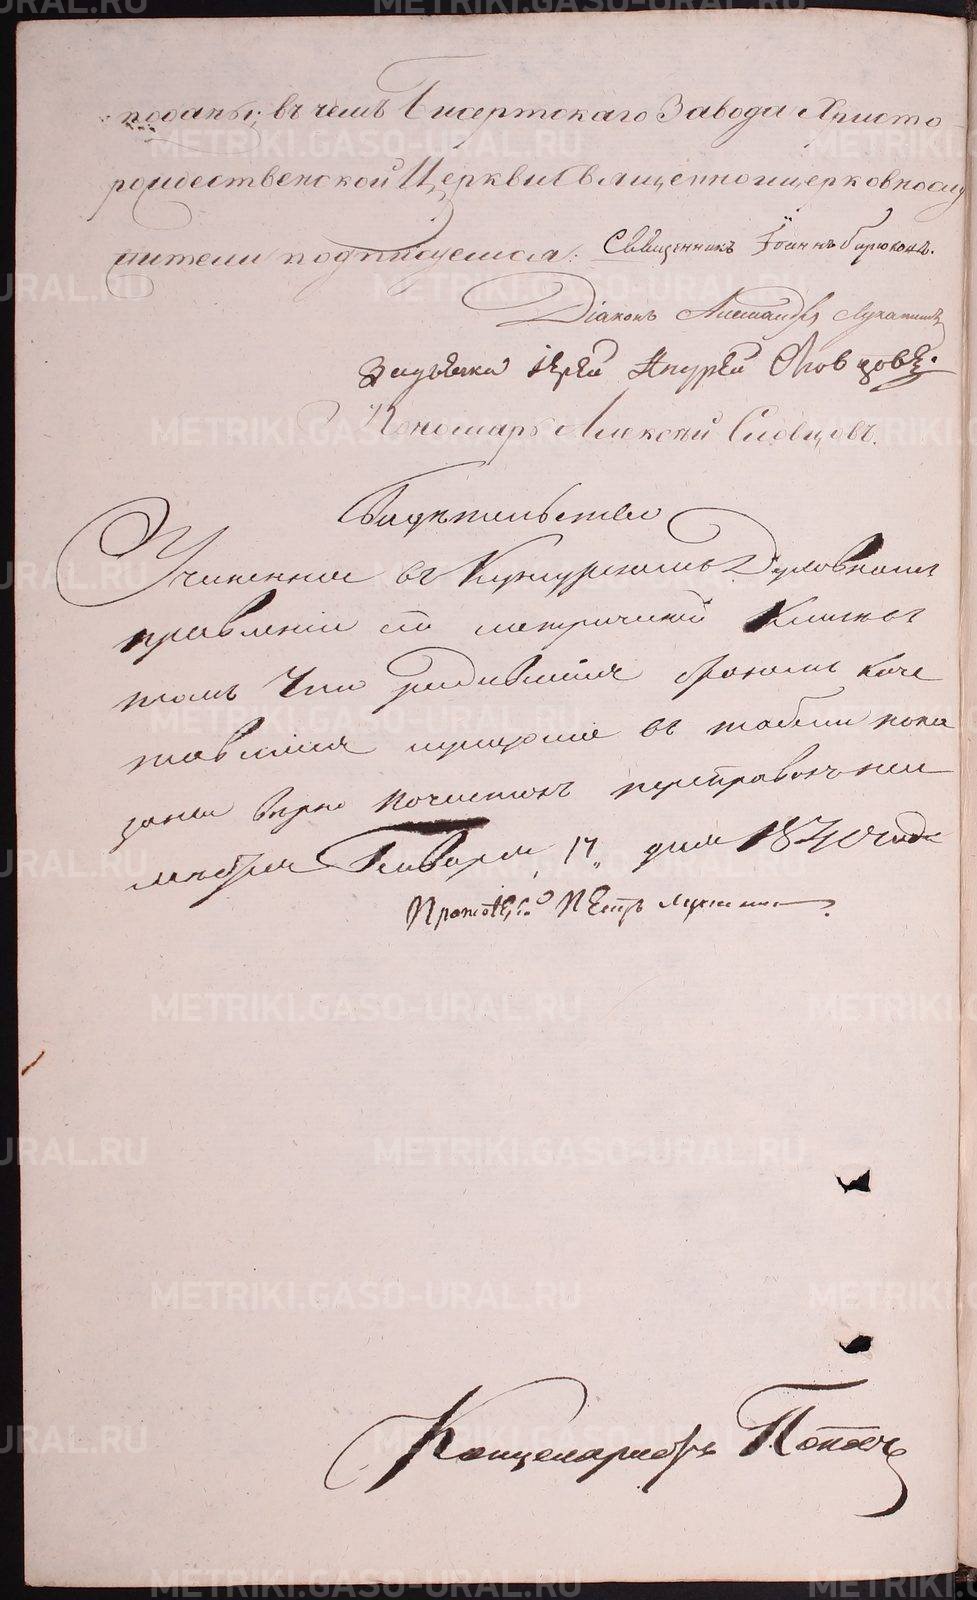 поданы; въ чемъ Бисертскаго Завода Христо
рождественской Церкви Священноицерковнослу
жители подписуемся: Священникъ Іоаннъ Бирюковъ.
Діаконъ Александръ Лукан
Задьячка іерей Андрей Словцовъ.
Пономарь Алексѣй Словцовъ.
Свидѣтельство
Учиненное въ Кунгурскомъ Духовномъ
правленіи сей метрической Книги въ
томъ Что родившіися бракомъ соче
тавшіися умершіе въ табели пока
заны вѣрно почисткъ переправокъ
Генваря 17 дня 1840 года
Протоіерей Петръ
Канцеляристъ Поповъ
METRIKI.GASO-URAL.RU